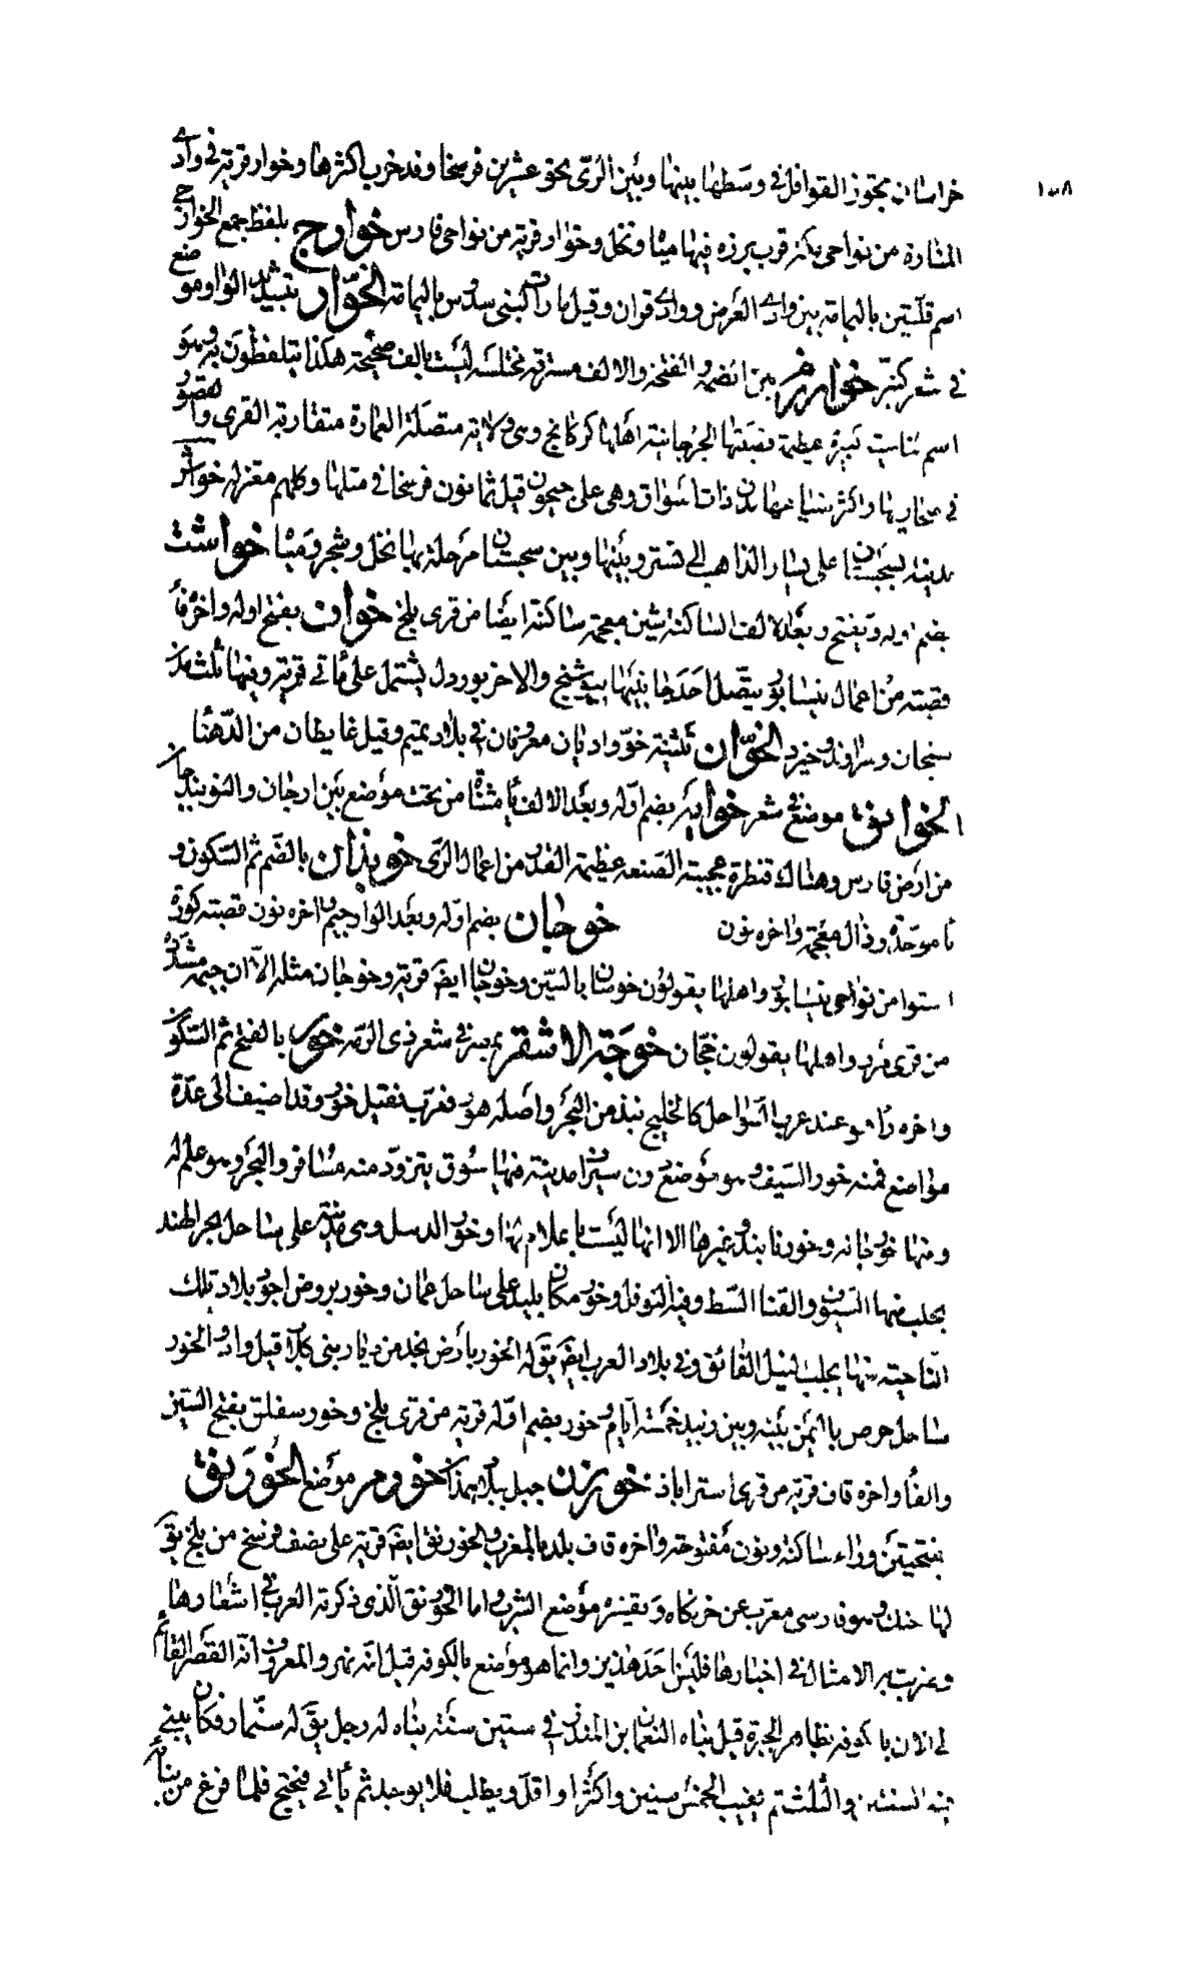 ١٥٨
خراسان تجوز القوافل فى وسطها بينها وبين الرّى نحو عشرين فرسخا وقد خرب اكثرها وخوار قرية فى وادى
المنارة من نواحى مكة قرب برزة فيها مياه ونخل وخوار قرية من نواحى فارس خوارج بلفظ جمع الخوارج
اسم قلتين باليمامة بين وادى العرض ووادى قران وقيل مارات لبنى سدوس باليمامة الخوّار بتشديد الواو موضع
فى شعر كثيّر خوارزم بين الضمة والفتحة والالف مسترقة مختلسة ليست بالف صحيحة هكذا يتلفظون به وهو
اسم ناحية كبيرة عظيمة قصبتها الجرجانية اهلها كركانج وهى ولاية متصلة العمارة متقاربة القرى والقصور
فى صحاريها واكثر ضياعها مدن ذات اسواق وهى على جيحون قيل ثمانون فرسخا فى مثلها وكلهم معتزلة خواش
مدينة بسجستان على يسار الذاهب الى تستر وبينها وبين سجستان مرحلة بها نخل وشجر ومياه خواشت
بضم اوله ويفتح وبعد الالف الساكنة شين معجمة ساكنة ايضا من قرى بلخ خواف بفتح اوله واخره فاء
قصبة من اعمال نيسابور يتصل احد جانبيها ببوشنج والاخر بزوزن يشتمل على مأتى قرية وفيها ثلث مدن
سنجان وسراوند وخرجرد الخوّان تثنية خوّ واديان معروفان فى بلاد تميم وقيل غايطان من الدّهنا
الخوانق موضع فى شعر خواية بضم اوّله وبعد الالف يا مثناة من تحت موضع بين ارجان والنوبندجان
من ارض فارس وهناك قنطرة عجيبة الصّنعة عظيمة القدر من اعمال الرّى خوبذان بالضم ثم السّكون و
با موحّدة وذال معجمة واخره نون خوجان بضم اوّله وبعد الواو جيم واخره نون قصبة كورة
استوا من نواحى نيسابور واهلها يقولون خوشان بالشين وخوجان ايضا قرية وخوجان مثله الاّ ان جيمه مشدّدة
من قرى مرو واهلها يقولون خجّان خوجة الاشقر بميز فى شعر ذى الرّمة خور بالفتح ثم السّكون
واخره را هو عند عرب السّواحل كالخليج ينبذ من البحر واصله هور فعرّب فقيل خور وقد اضيف الى عدّة
مواضع فمنه خور السّيف وهو موضع دون سيراف مدينة فيها سوق يتزوّد منه مسافر والبحر وهو علم له
ومنها خور جنابه وخور نابند وغيرها الا انها ليست باعلام لهذا وخور الديبل وهى مدينة على ساحل بحر الهند
يجلب منها السّيوف والقنا السّط وفيه التوفل وخور مكان بليد على ساحل عمان وخور بروض اجود بلاد تلك
النّاحية منها يجلب لنيل الفائق وفى بلاد العرب ايضا يق له الخور بارض نجد من ديار بنى كلاب قيل واد والخور
ساحل حرص باليمن بينه وبين زبيد خمسة ايام وخور بضم اوّله قرية من قرى بلخ وخور سفلق بفتح السّين
والفا واخره قاف قرية من قرى استراباذ خورزن جبل بباب همذان خورم موضع الخورنق
بفتحتين وراء ساكنة ونون مفتوحة واخره قاف بلد بالمغرب والخورنق ايضا قرية على نصف فرسخ من بلخ يق
لها خبنك وهو فارسى معرّب عن خرنكاه وتفسيره موضع الشرب واما الخورنق الذى ذكرته العرب فى اشعارها
وضربت به الامثال فى اخبارها فليس احد هذين وانما هو موضع بالكوفة قيل انّه نهر والمعروف انّه القصر القائم
الى الان بالكوفة بظاهر الحيرة قيل بناه النعمان بن المنذر فى ستين سنة بناه له رجل يق له سنّمار فكان يبنى
فيه السنتين والثلث ثم يغيب الخمس سنين واكثر او اقلّ ويطلب فلا يوجد ثم يأتى فيحتج فلما فرغ من بنائه